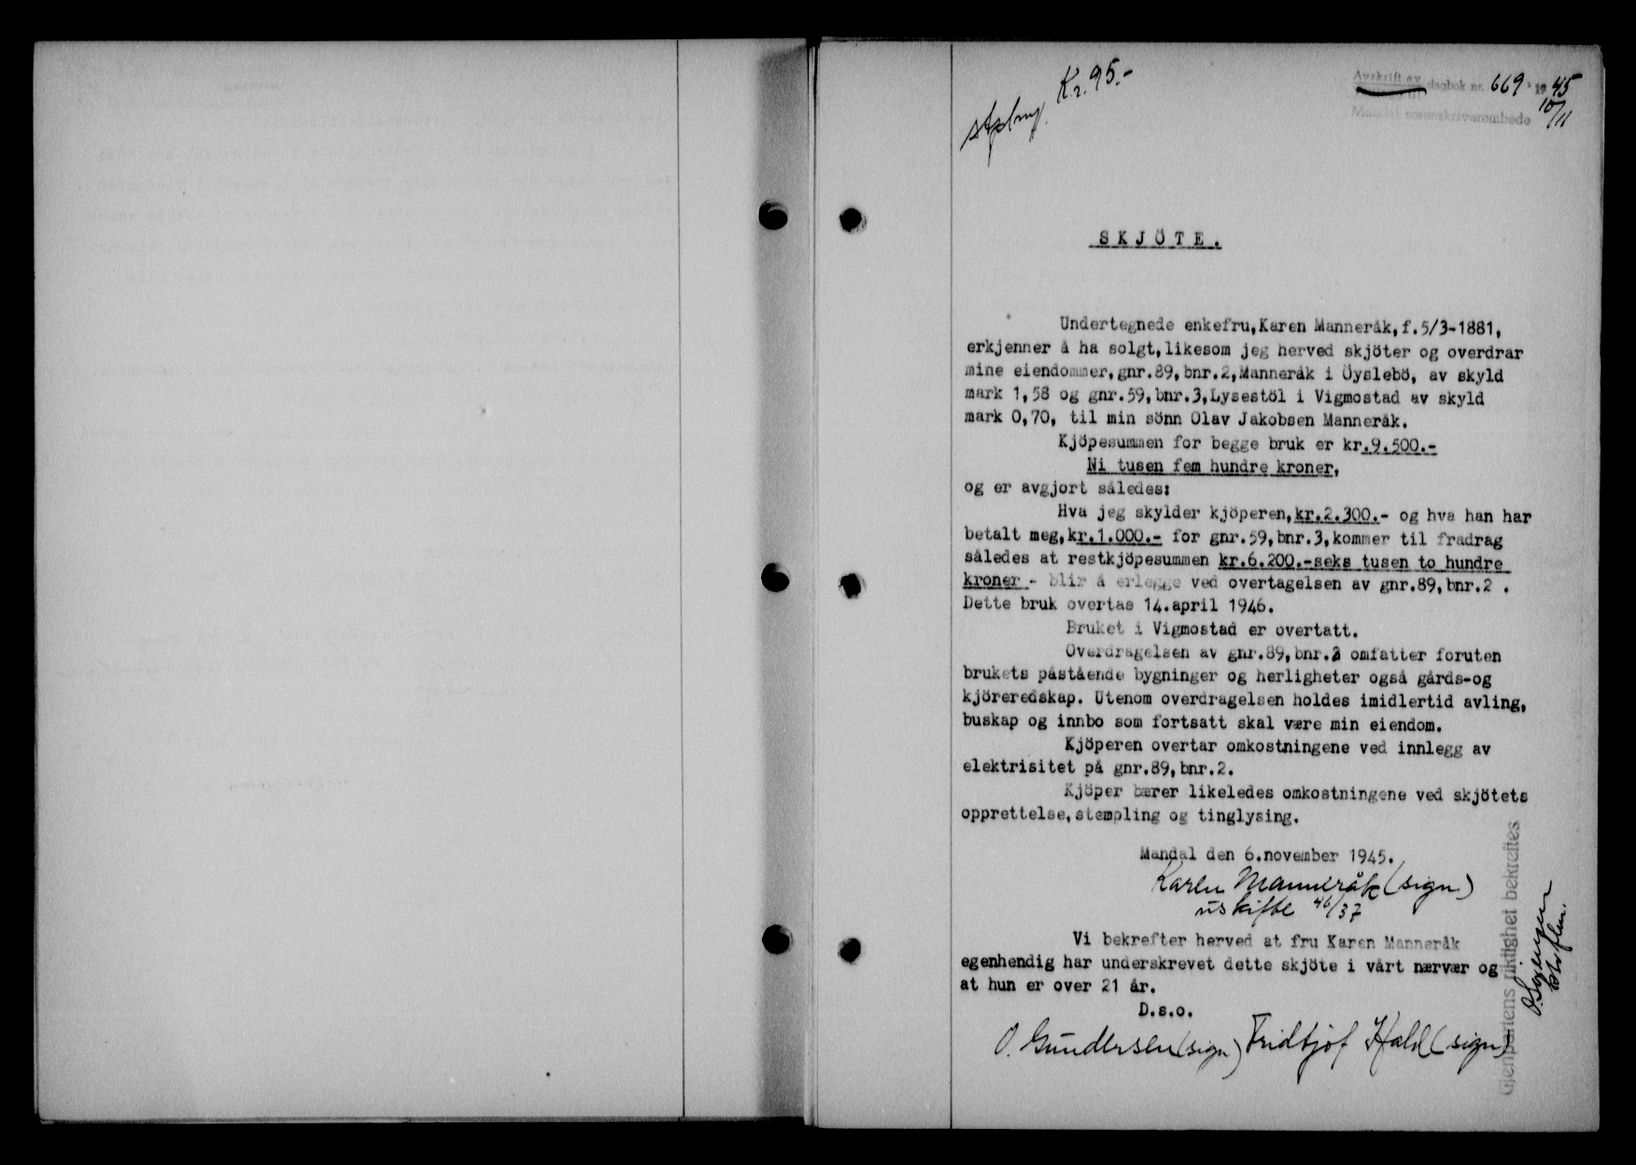 Kr. 95.-
Avskrift av dagbok nr. 669 1945
10/11
Mandal sorenskriverembede
SKJÖTE.
Undertegnede enkefru,Karen Manneråk,f.5/3-1881,
erkjenner å ha solgt,likesom jeg herved skjöter og overdrar
mine eiendommer,gnr.89,bnr.2,Manneråk i Öyslebö, av skyld
mark 1,58 og gnr.59,bnr.3,Lysestöl i Vigmostad av skyld
mark 0,70, til min sönn Olav Jakobsen Manneråk.
Kjöpesummen for begge bruk er kr.9.500.-
Ni tusen fem hundre kroner,
og er avgjort således:
Hva jeg skylder kjöperen,kr.2.300.- og hva han har
betalt meg,kr.1.000.- for gnr.59,bnr.3,kommer til fradrag
således at restkjöpesummen kr.6.200.-seks tusen to hundre
kroner - blir å erlegge ved overtagelsen av gnr.89,bnr.2 .
Dette bruk overtas 14.april 1946.
Bruket i Vigmostad er overtatt.
Overdragelsen av gnr.89,bnr.2 omfatter foruten
brukets påstående bygninger og herligheter også gårds-og
kjöreredskap. Utenom overdragelsen holdes imidlertid avling,
buskap og innbo som fortsatt skal være min eiendom.
Kjöperen overtar omkostningene ved innlegg av
elektrisitet på gnr.89,bnr.2.
Kjöper bærer likeledes omkostningene ved skjötets
opprettelse,stempling og tinglysing.
Mandal den 6.november 1945.
Karen Manneråk (sign)
uskifte 46/37
Vi bekrefter herved at fru Karen Manneråk
egenhendig har underskrevet dette skjöte i vårt nærvær og
at hun er over 21 år.
D.s.o.
O. Gundersen (sign) Fridtjof Hald (sign)
Gjenpartens riktighet bekreftes